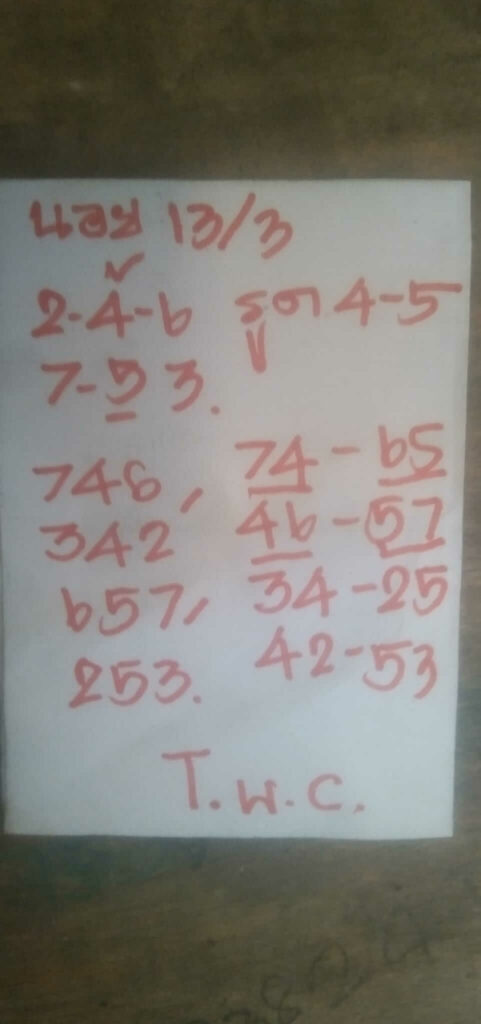 นอย 13/3
2-4-6 รูด 4-5
7-5 3.
746, 74-65
342 46-57
657, 34-25
253. 42-53
T.W.C.